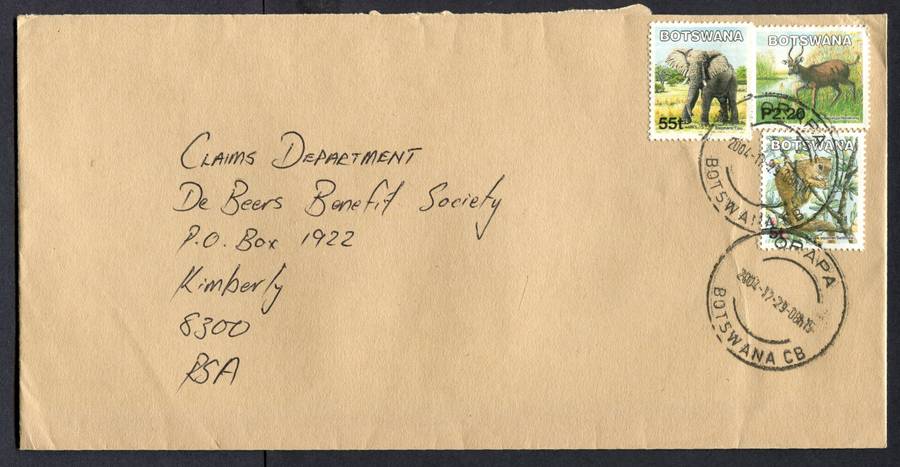 BOTSWANA
55t
BOTSWANA
P2.20
BOTSWANA
5t
ORAPA
BOTSWANA CB
ORAPA
2004-12-29-08h15
BOTSWANA CB
Claims Department
De Beers Benefit Society
P.O. Box 1922
Kimberly
8300
RSA